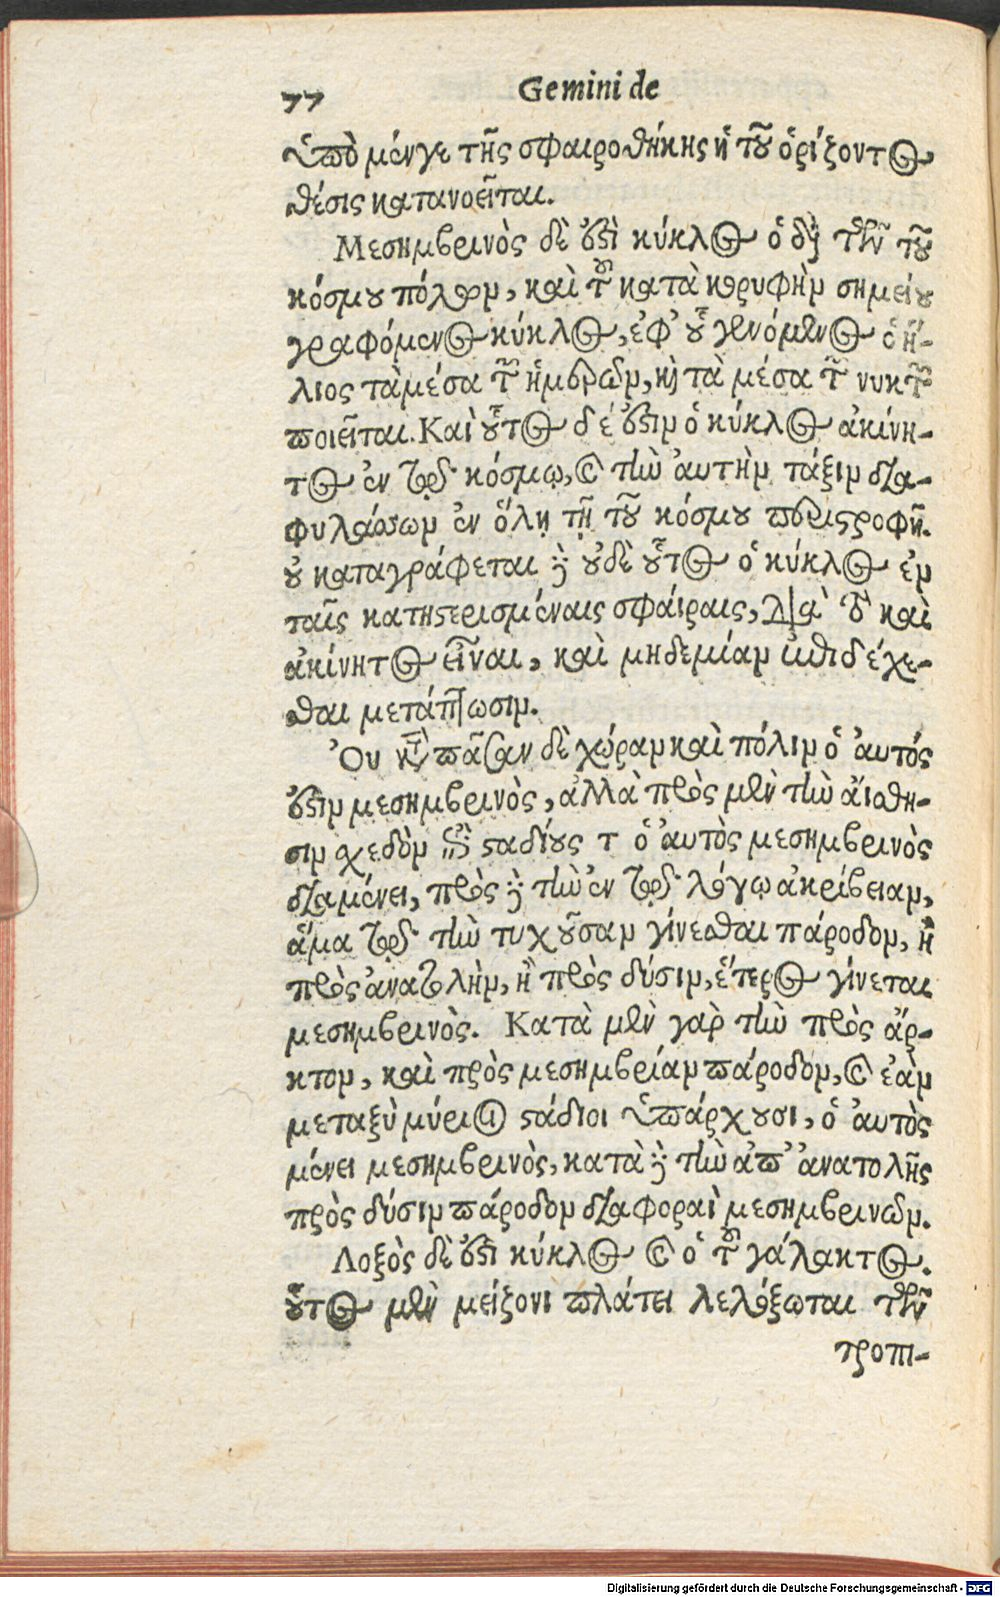 77 Gemini de
ὑπὸ μέν γε τῆς σφαιροθήκης ἡ τοῦ ὁρίζοντος
θέσις κατανοεῖται.
Μεσημβρινὸς δὲ ὅστὶ κύκλος ὁ διὰ τῶν τοῦ
κόσμου πόλων, καὶ τοῦ κατὰ κορυφὴν σημείου
γραφόμενος κύκλος, ἐφ᾽ οὗ γενόμενος ὁ ἥ-
λιος τὰ μέσα τῶν ἡμερῶν, καὶ τὰ μέσα τῶν νυκτῶν
ποιεῖται. Καὶ οὗτος δέ ἐστιν ὁ κύκλος ἀκίνη-
τος ἐν τῷ κόσμῳ, καὶ τὴν αὐτὴν τάξιν δια-
φυλάσσων ἐν ὅλῃ τῇ τοῦ κόσμου περιστροφῇ.
οὐ καταγράφεται δὲ οὐδὲ οὗτος ὁ κύκλος ἐν
ταῖς κατηστερισμέναις σφαίραις, διὰ τὸ καὶ
ἀκίνητος εἶναι, καὶ μηδεμίαν ἐπιδέχε-
σθαι μετάπτωσιν.
Ὀυ κατὰ πᾶσαν δὲ χώραν καὶ πόλιν ὁ αὐτός
ἐστιν μεσημβρινὸς, ἀλλὰ πρὸς μὲν τὴν αἴσθη-
σιν σχεδὸν ἐπὶ σταδίους τ ὁ αὐτὸς μεσημβρινὸς
διαμένει, πρὸς δὲ τὴν ἐν τῷ λόγῳ ἀκρίβειαν,
ἅμα τῷ τὴν τυχοῦσαν γίνεσθαι πάροδον, ἢ
πρὸς ἀνατολὴν, ἢ πρὸς δύσιν, ἕτερος γίνεται
μεσημβρινὸς. Κατὰ μὲν γὰρ τὴν πρὸς ἄρ-
κτον, καὶ πρὸς μεσημβρίαν πάροδον, καὶ ἐὰν
μεταξὺ μύριοι στάδιοι ὑπάρχουσι, ὁ αὐτὸς
μένει μεσημβρινὸς, κατὰ δὲ τὴν ἀπ᾽ ἀνατολῆς
πρὸς δύσιν πάροδον διαφοραὶ μεσημβρινῶν.
Λοξὸς δὲ ἐστὶ κύκλος καὶ ὁ τοῦ γάλακτος.
οὗτος μὲν μείζονι πλάτει λελόξωται τῶν
τροπι-
Digitalisierung gefördert durch die Deutsche Forschungsgemeinschaft - DFG